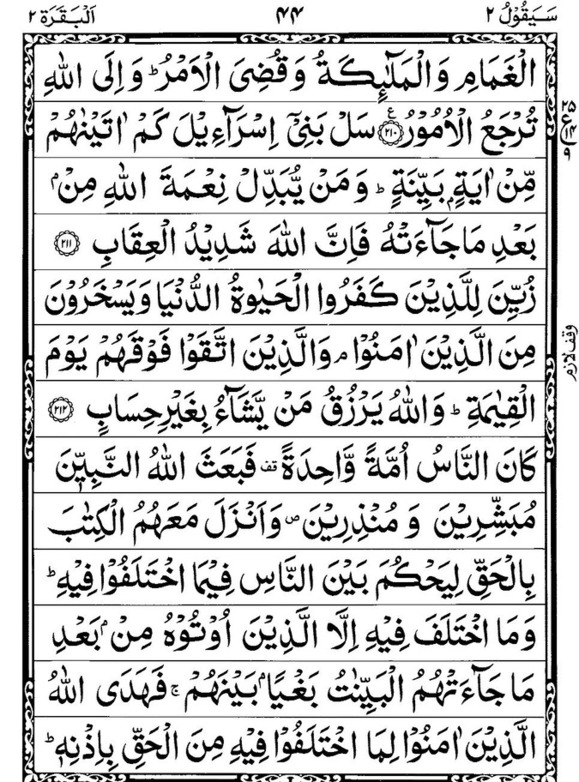 سَيَقُوْلُ ٢ ٤٤ اَلْبَقَرَة ٢
الْغَمَامِ وَالْمَلٰٓئِكَةُ وَقُضِيَ الْاَمْرُ ؕ وَاِلَى اللّٰهِ
تُرْجَعُ الْاُمُوْرُ ﴿٢١٠﴾ ع سَلْ بَنِيْٓ اِسْرَآءِيْلَ كَمْ اٰتَيْنٰهُمْ
٢٥
ع
١٤
٩
مِّنْ اٰيَةٍۭ بَيِّنَةٍ ؕ وَمَنْ يُّبَدِّلْ نِعْمَةَ اللّٰهِ مِنْۢ
بَعْدِ مَا جَآءَتْهُ فَاِنَّ اللّٰهَ شَدِيْدُ الْعِقَابِ ﴿٢١١﴾
زُيِّنَ لِلَّذِيْنَ كَفَرُوا الْحَيٰوةُ الدُّنْيَا وَيَسْخَرُوْنَ
مِنَ الَّذِيْنَ اٰمَنُوْا ۘ وَالَّذِيْنَ اتَّقَوْا فَوْقَهُمْ يَوْمَ
وقف لازم
الْقِيٰمَةِ ؕ وَاللّٰهُ يَرْزُقُ مَنْ يَّشَآءُ بِغَيْرِ حِسَابٍ ﴿٢١٢﴾
كَانَ النَّاسُ اُمَّةً وَّاحِدَةً قف فَبَعَثَ اللّٰهُ النَّبِيّٖنَ
مُبَشِّرِيْنَ وَ مُنْذِرِيْنَ ص وَاَنْزَلَ مَعَهُمُ الْكِتٰبَ
بِالْحَقِّ لِيَحْكُمَ بَيْنَ النَّاسِ فِيْمَا اخْتَلَفُوْا فِيْهِ ؕ
وَمَا اخْتَلَفَ فِيْهِ اِلَّا الَّذِيْنَ اُوْتُوْهُ مِنْۢ بَعْدِ
مَا جَآءَتْهُمُ الْبَيِّنٰتُ بَغْيًاۢ بَيْنَهُمْ ۚ فَهَدَى اللّٰهُ
الَّذِيْنَ اٰمَنُوْا لِمَا اخْتَلَفُوْا فِيْهِ مِنَ الْحَقِّ بِاِذْنِهٖ ؕ